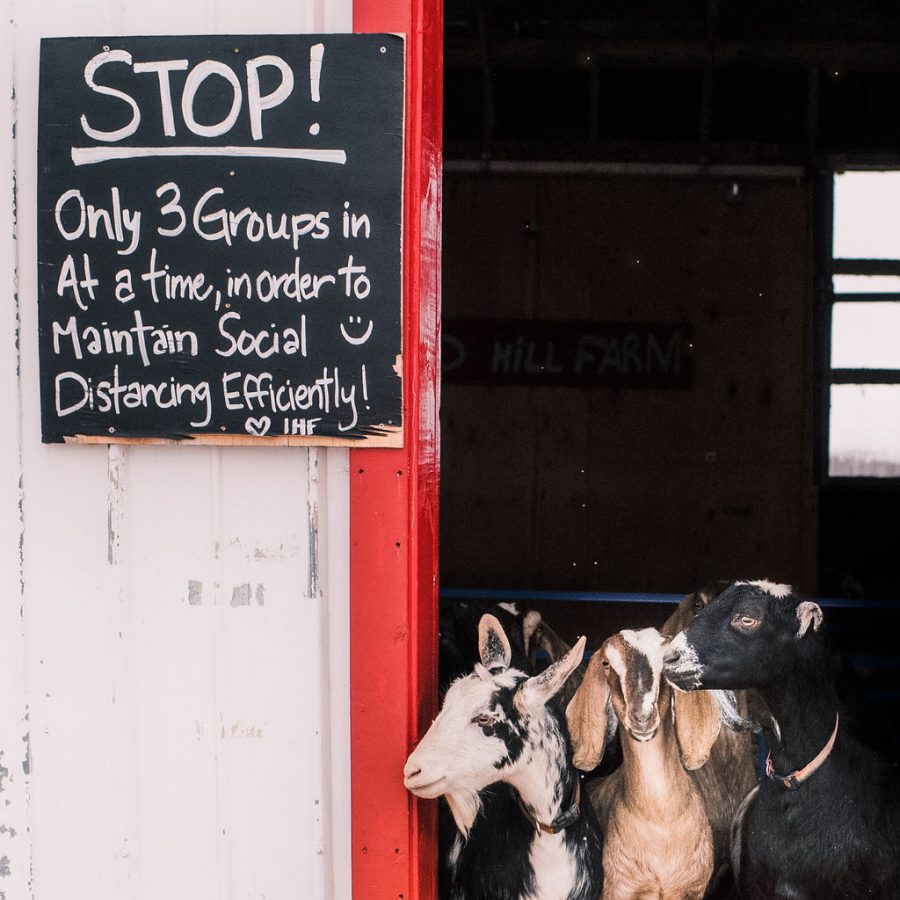 STOP!
Only 3 Groups in
At a time, in order to
Maintain Social
Distancing Efficiently!
♡ LHF
HILL FARM